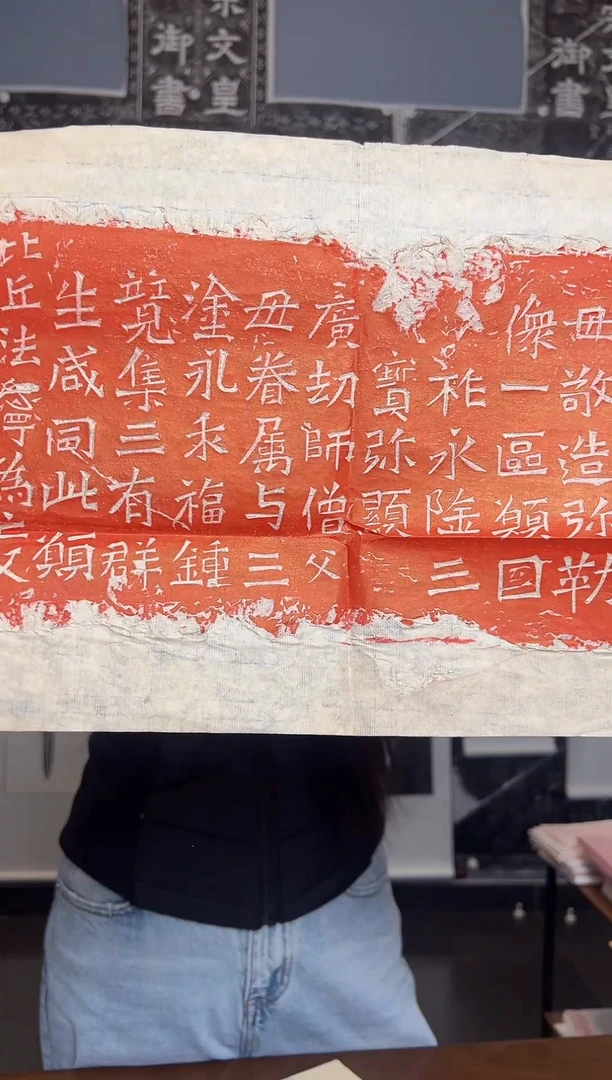 毋敬造弥勒
像一區願国
祚永隆三
寳弥顯
廣劫師僧父
毋眷属与三
塗永求福鍾
竟集三有群
生咸同此願
比丘法寧為
文皇
御書
御書